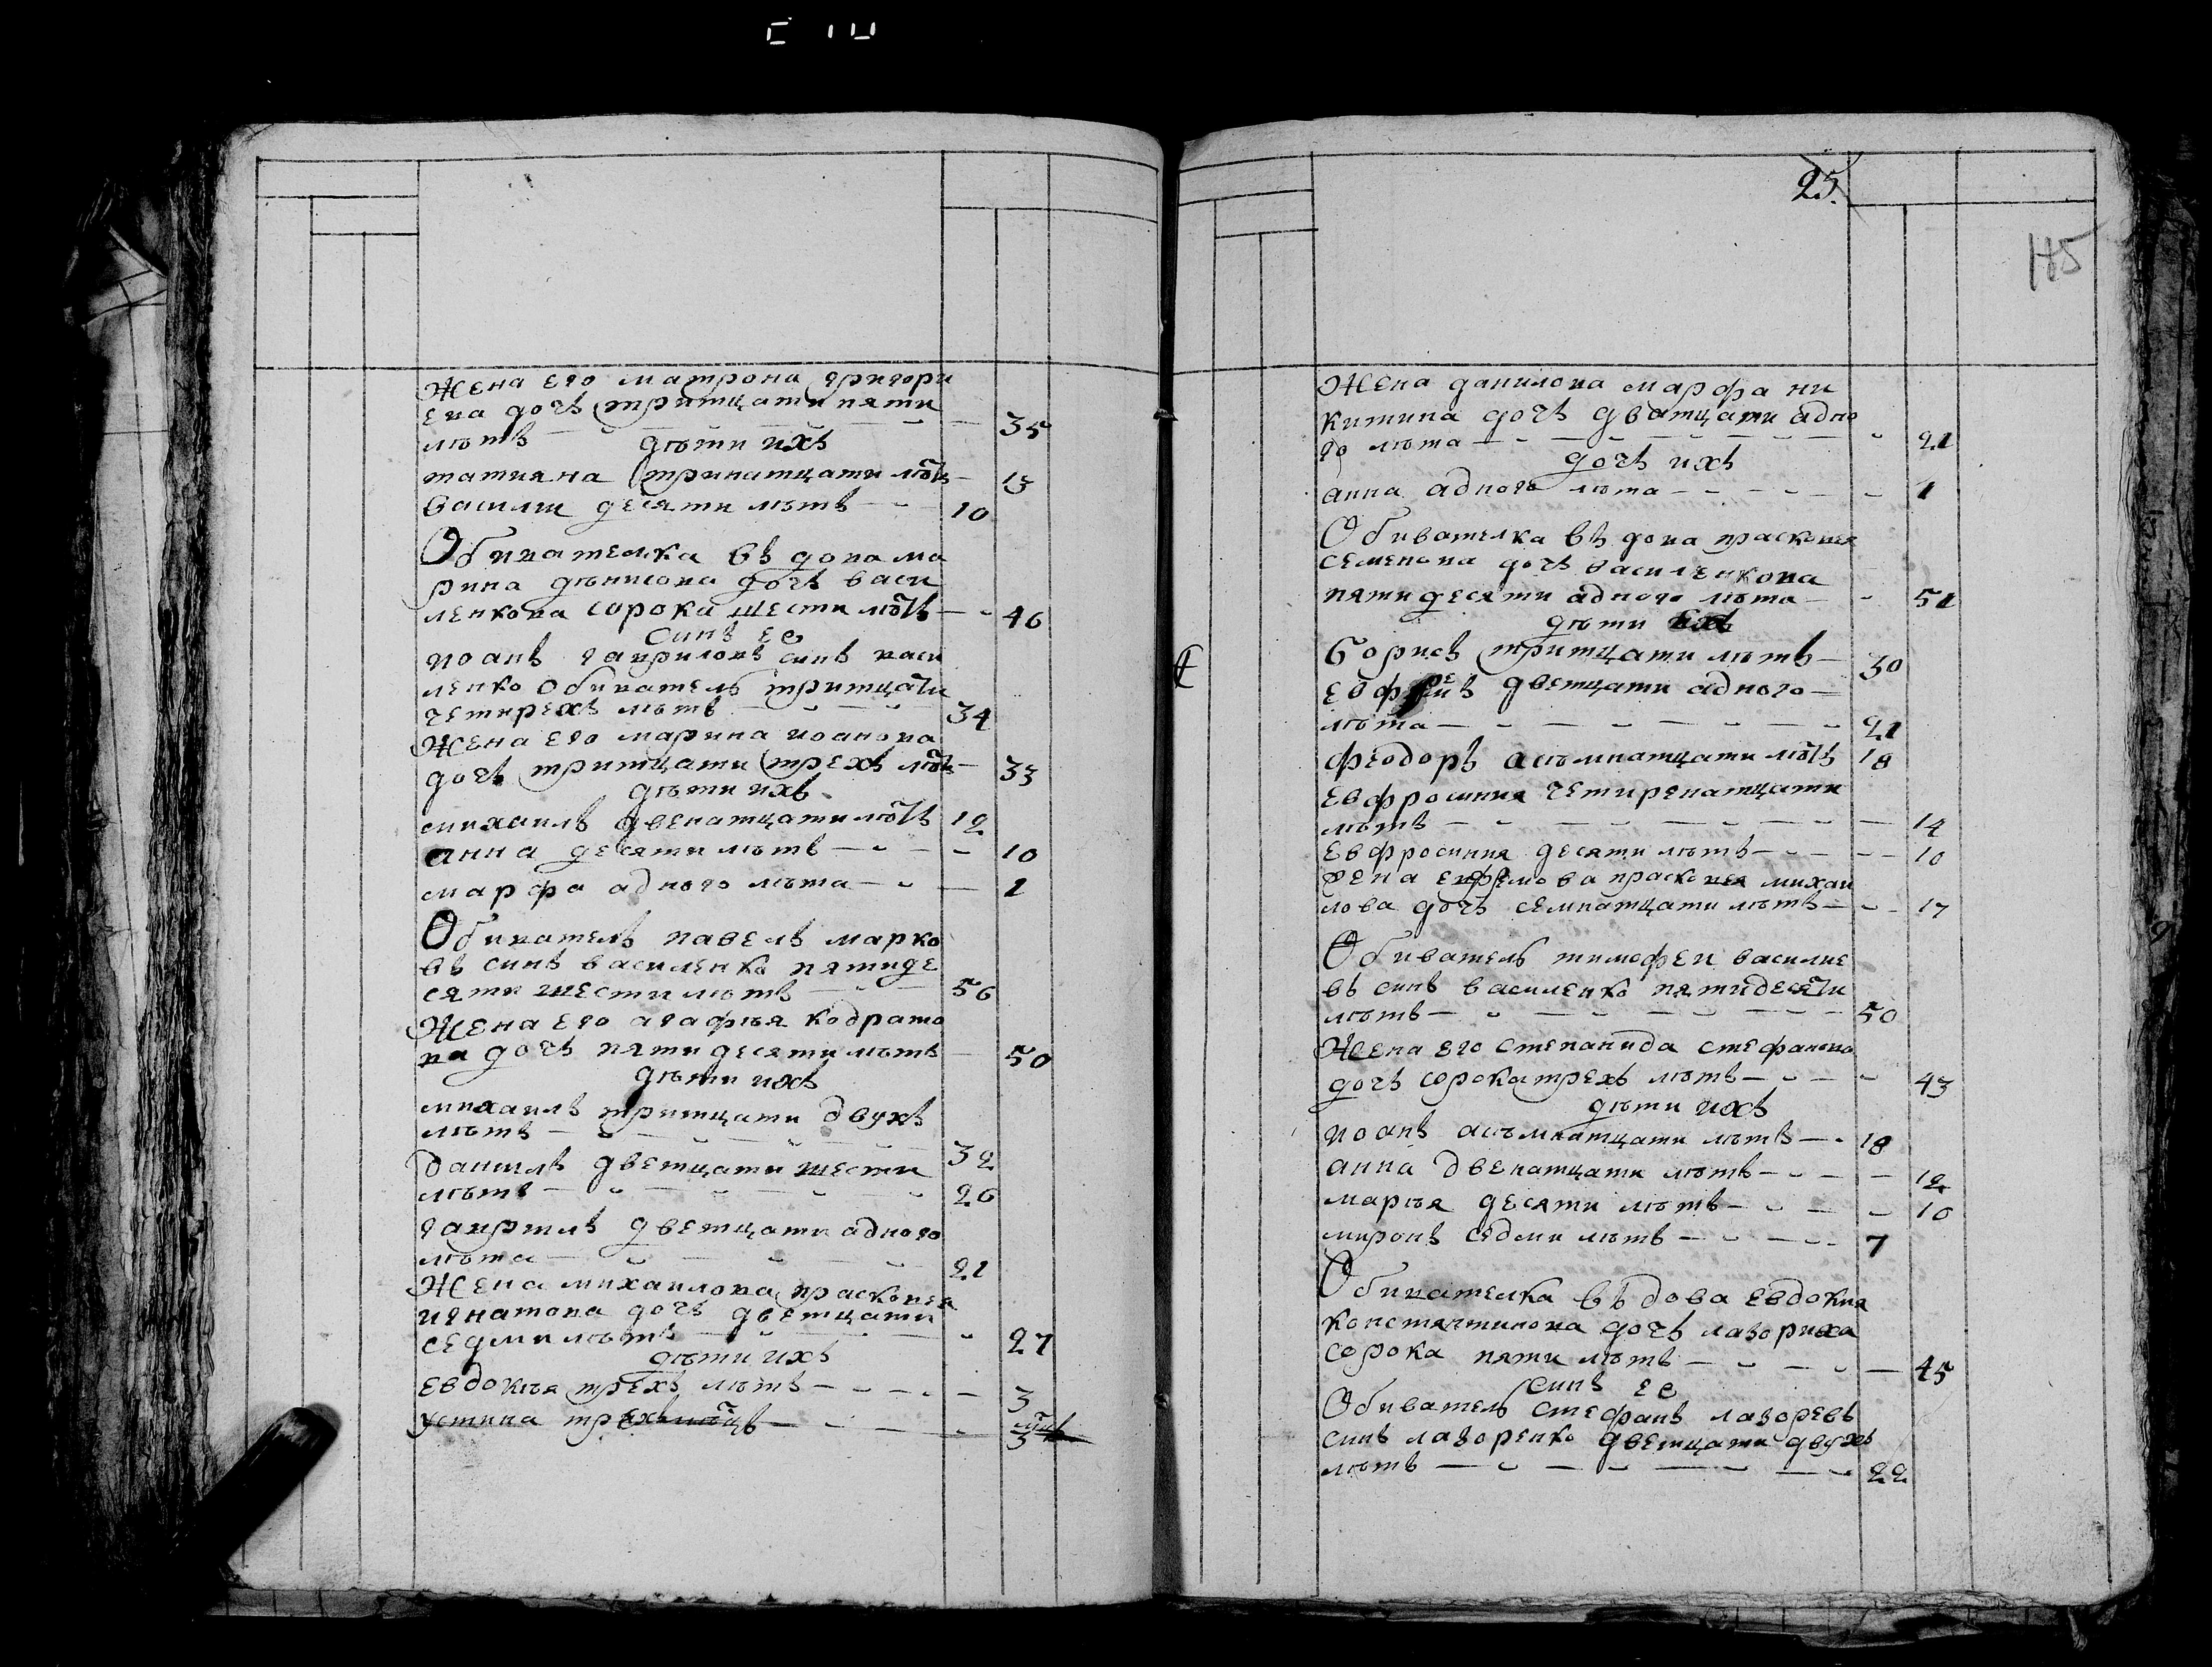 Жена его матрона григори
ева дочъ тритцати пяти
лѣтъ 35
дѣти ихъ
татияна тринатцати лѣтъ 13
василии десяти лѣтъ 10
Обивателка въдова ма
рина дѣнисова дочъ васи
ленкова сорока шести лѣтъ 46
синъ ее
иоанъ гавриловъ синъ васи
ленко обиватель тритцати
четирехъ лѣтъ 34
Жена его марина иоанова
дочъ тритцати трехъ лѣтъ 33
дѣти ихъ
михаилъ двенатцати лѣтъ 12
анна десяти лѣтъ 10
марфа адного лѣта 1
Обиватель павелъ марко
въ синъ василенко пятиде
сяти шести лѣтъ 56
Жена его агафѣя кодрато
ва дочъ пяти десяти лѣтъ 50
дѣти ихъ
михаилъ тритцати двухъ
лѣтъ 32
данилъ дветцати шести
лѣтъ 26
гаврилъ дветцати адного
лѣта 21
Жена михаилова прасковея
игнатова дочъ дветцати
седми лѣтъ 27
дѣти ихъ
евдокѣя трехъ лѣтъ 3
устина трехъ 3
25
185
Жена данилова марфа ни
китина дочъ дватцати адно
го лѣта 21
дочъ ихъ
анна адного лѣта 1
Обивателка въдова прасковея
семенова дочъ василенкова
пятидесяти адного лѣта 51
дѣти
борисъ тритцати лѣтъ 30
дветцати адного
лѣта 21
феодоръ асѣмнатцати лѣтъ 18
евфросиния четиренатцати
лѣтъ 14
евфросиния десяти лѣтъ 10
жена ефремова прасковея михаи
лова дочъ семнатцати лѣтъ 17
Обиватель тимофеи василие
въ синъ василенко пятидесяти
лѣтъ 50
Жена его степанида стефанова
дочъ сорока трехъ лѣтъ 43
дѣти ихъ
иоанъ асѣмнатцати лѣтъ 18
анна двенатцати лѣтъ 12
марѣя десяти лѣтъ 10
миронъ седми лѣтъ 7
Обивателка въдова евдокия
константинова дочъ лазориха
сорока пяти лѣтъ 45
синъ ее
Обиватель стефанъ лазоревъ
синъ лазоренко дветцати двухъ
лѣтъ 22